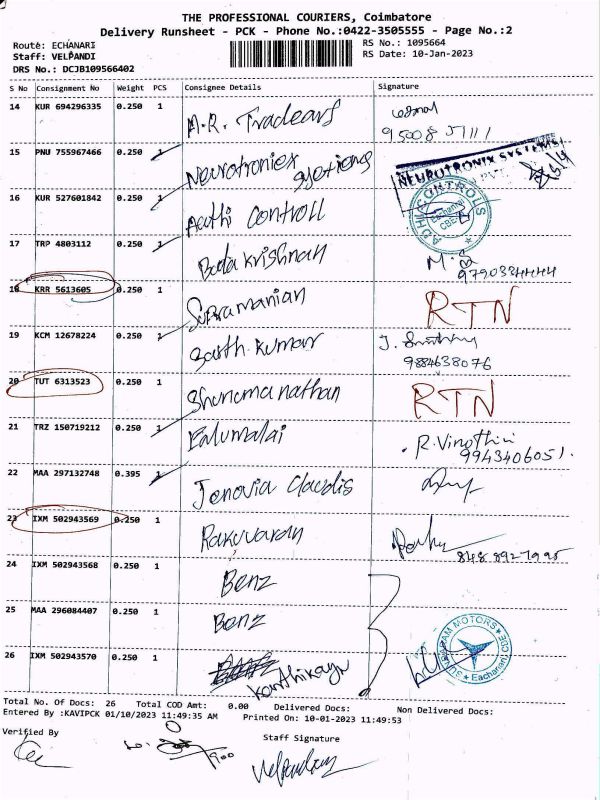 THE PROFESSIONAL COURIERS, Coimbatore
Delivery Runsheet - PCK - Phone No.:0422-3505555 - Page No.:2
Route: ECHANARI
RS No.: 1095664
Staff: VELPANDI
RS Date: 10-Jan-2023
DRS No.: DCJB109566402
S No Consignment No Weight PCS Consignee Details Signature
14 KUR 694296335 0.250 1 A.R. Tradears
95008 51111
15 PNU 755967466 0.250 1 Neurotroniex systions NEUROTRONIX SYSTEMS
16 KUR 527601842 0.250 1 Aathi Controll ADHI CONTROLS
17 TRP 4803112 0.250 1 Balakrishnan
9790384444
18 KRR 5613605 0.250 1 Supramanian RTN
19 KCM 12678224 0.250 1 Sarth.kumar
9884638076
20 TUT 6313523 0.250 1 Shunmanathan RTN
21 TRZ 150719212 0.250 1 Ealumalai R.Vinothini
9943406051.
22 MAA 297132748 0.395 1 Jenovia Claudis
23 IXM 502943569 0.250 1 Rakuvaran
848 8927995
24 IXM 502943568 0.250 1 Benz
25 MAA 296084407 0.250 1 Benz
26 IXM 502943570 0.250 1 Karthikayu
MOTORS
Total No. Of Docs: 26 Total COD Amt: 0.00 Delivered Docs: Non Delivered Docs:
Entered By :KAVIPCK 01/10/2023 11:49:35 AM Printed On: 10-01-2023 11:49:53
Verified By
Staff Signature
Velpandi